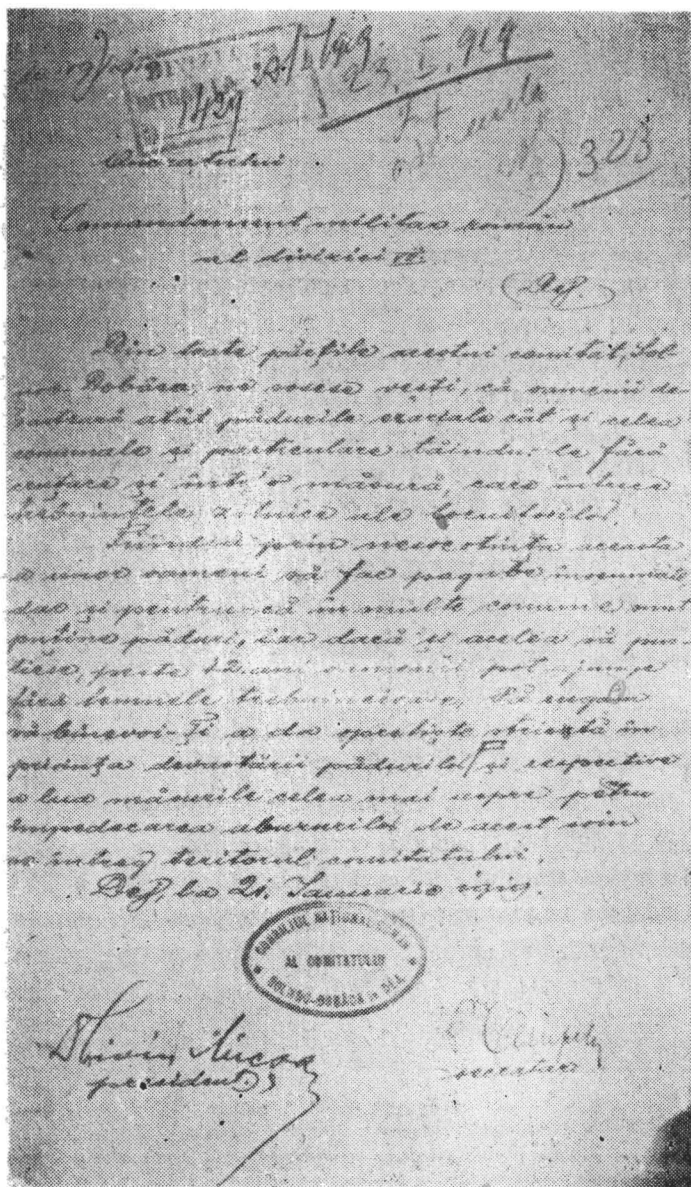 DIVIZIA
1429
23. I. 919
323
Onoratului
Comandament militar român
al diviziei VI.
Dej.
Din toate părțile acestui comitat, Sol-
noc-Dobâca ne sosesc vești, că oamenii de-
vastează atât pădurile erariale cât și celea
comunale și particulare tăindu-le fără
cruțare și într'o măsură, care întrece
trebuințele zilnice ale locuitorilor.
Fiindcă prin nesocotința aceasta
a unor oameni să fac pagube însemnate,
dar și pentru că în multe comune sunt
puține păduri, iar dacă și acelea să pus-
tiesc, peste 1-2 ani oamenii pot ajunge
fără lemnele trebuincioase, Vă rugăm
să binevoi-ți a da opreliște strictă în
privința devastării pădurilor și respective
a lua măsurile celea mai aspre pentru
împedecarea abuzurilor de acest soiu
în întreg teritorul comitatului.
Dej, la 21. Ianuarie 1919.
CONSILIUL NAȚIONAL ROMÂN
AL COMITATULUI
SOLNOC-DOBÂCA în DEJ
Dr Liviu Micșa
president.
secretar